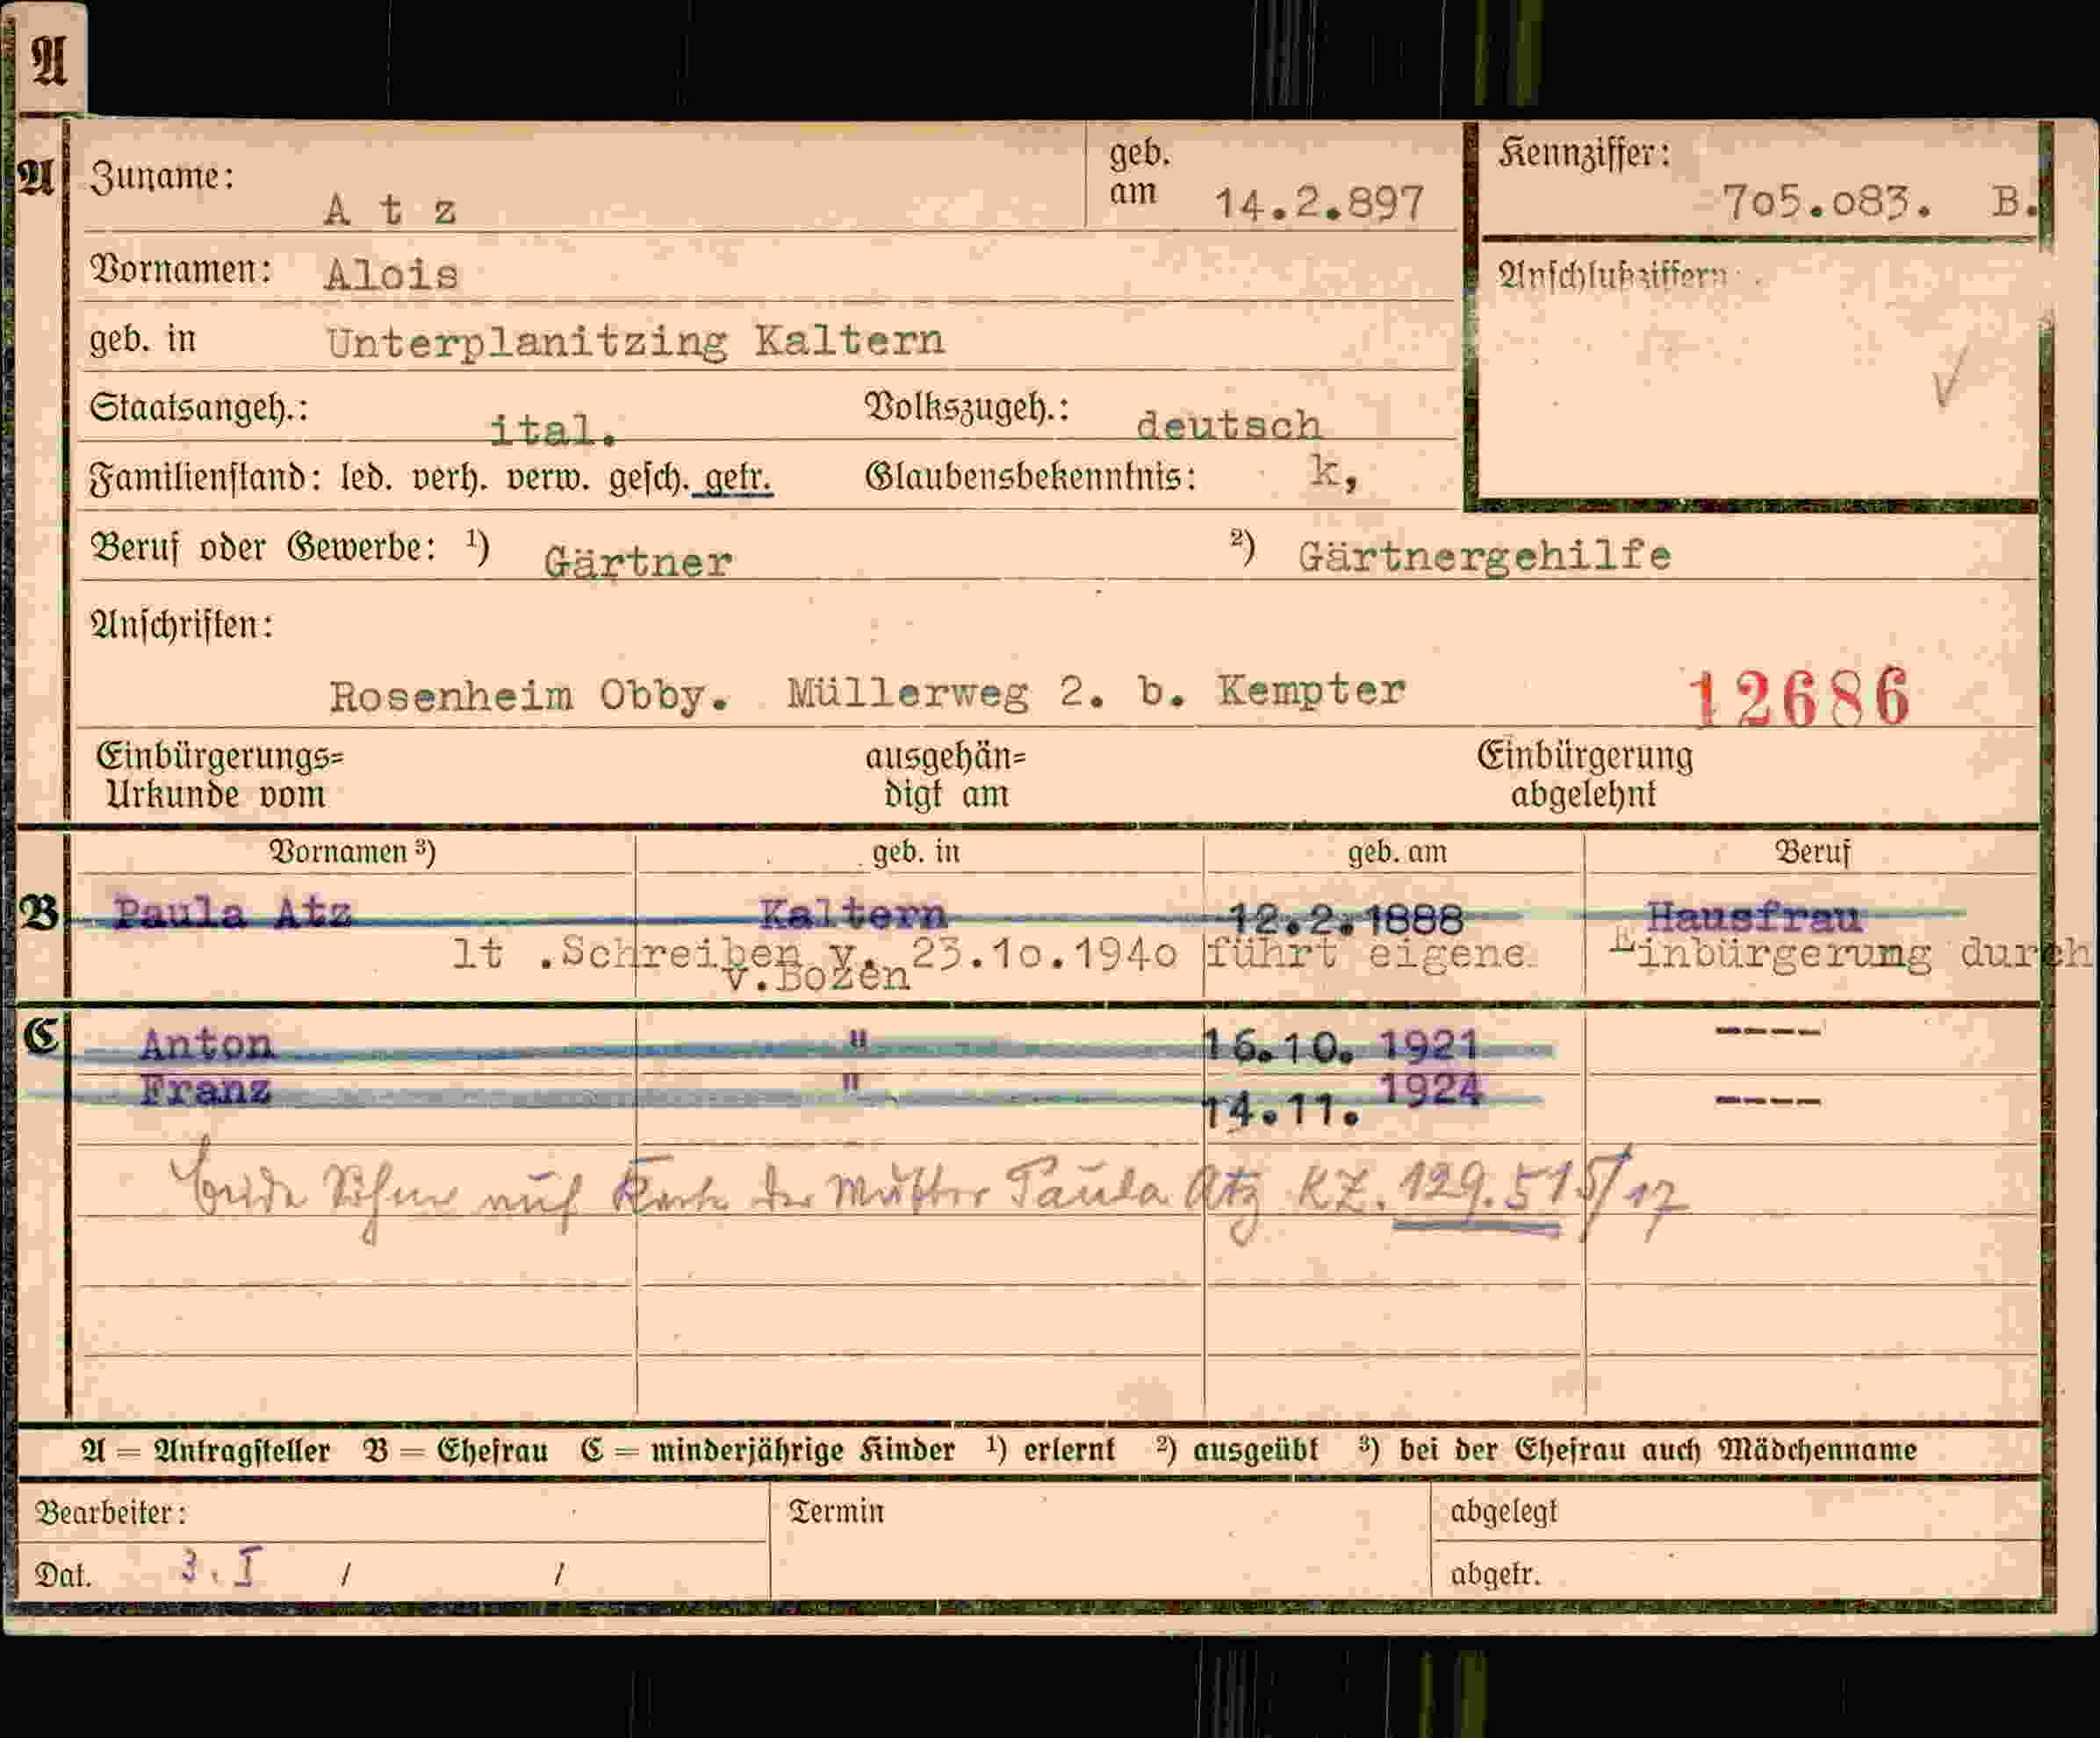 A
A Zuname: A t z geb. am 14.2.897 Kennziffer: 705.083. B.
Vornamen: Alois Anschlußziffern:
geb. in Unterplanitzing Kaltern
Staatsangeh.: ital. Volkszugeh.: deutsch
Familienstand: led. verh. verw. gesch. getr. Glaubensbekenntnis: k,
Beruf oder Gewerbe: ¹) Gärtner ²) Gärtnergehilfe
Anschriften:
Rosenheim Obby. Müllerweg 2. b. Kempter 12686
Einbürgerungs= ausgehän= Einbürgerung
Urkunde vom digt am abgelehnt
Vornamen ³) geb. in geb. am Beruf
B Paula Atz Kaltern 12.2.1888 Hausfrau
lt .Schreiben v. 23.10.1940 führt eigene Einbürgerung durch
v.Bozen
C Anton " 16.10. 1921 ----
Franz " 14.11. 1924 ----
beide Söhne auf Karte der Mutter Paula Atz KZ. 129.515/17
A = Antragsteller B = Ehefrau C = minderjährige Kinder ¹) erlernt ²) ausgeübt ³) bei der Ehefrau auch Mädchenname
Bearbeiter: Termin abgelegt
Dat. 3. I / / abgetr.